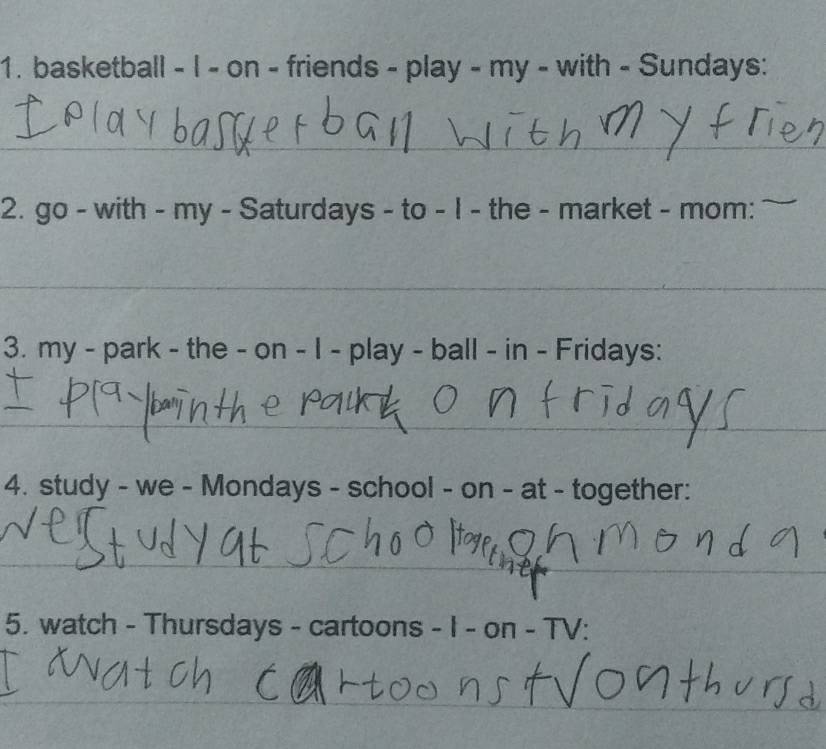 1. basketball - I - on - friends - play - my - with - Sundays:
I play basketball with my frien
2. go - with - my - Saturdays - to - I - the - market - mom:
3. my - park - the - on - I - play - ball - in - Fridays:
I play ball in the park on fridays
4. study - we - Mondays - school - on - at - together:
We study at school together on monda
5. watch - Thursdays - cartoons - I - on - TV:
I watch cartoons tV on thursd